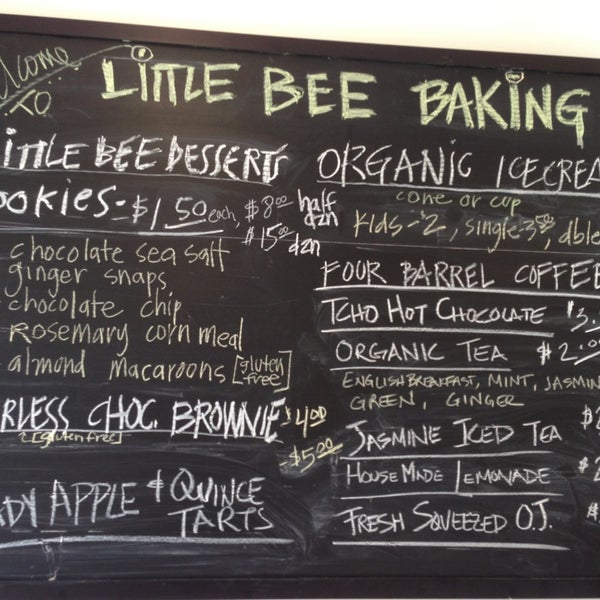 elcome
TO
LITTLE BEE BAKING
ITTLE BEE DESSERTS
OOKIES - $1.50 each, $8.00 half dzn
$15.00 dzn
chocolate sea salt
ginger snaps
chocolate chip
Rosemary corn meal
almond macaroons [gluten free]
RLESS CHOC. BROWNIE $4.00
[gluten free]
$5.00
DY APPLE & QUINCE
TARTS
ORGANIC ICECREA
cone or cup
Kids-2, single-3.50, dble
FOUR BARREL COFFEE
TCHO HOT CHOCOLATE $3.
ORGANIC TEA $2.00
ENGLISH BREAKFAST, MINT, JASMIN
GREEN, GINGER
JASMINE ICED TEA $2
HOUSEMADE LEMONADE $2
FRESH SQUEEZED O.J. $